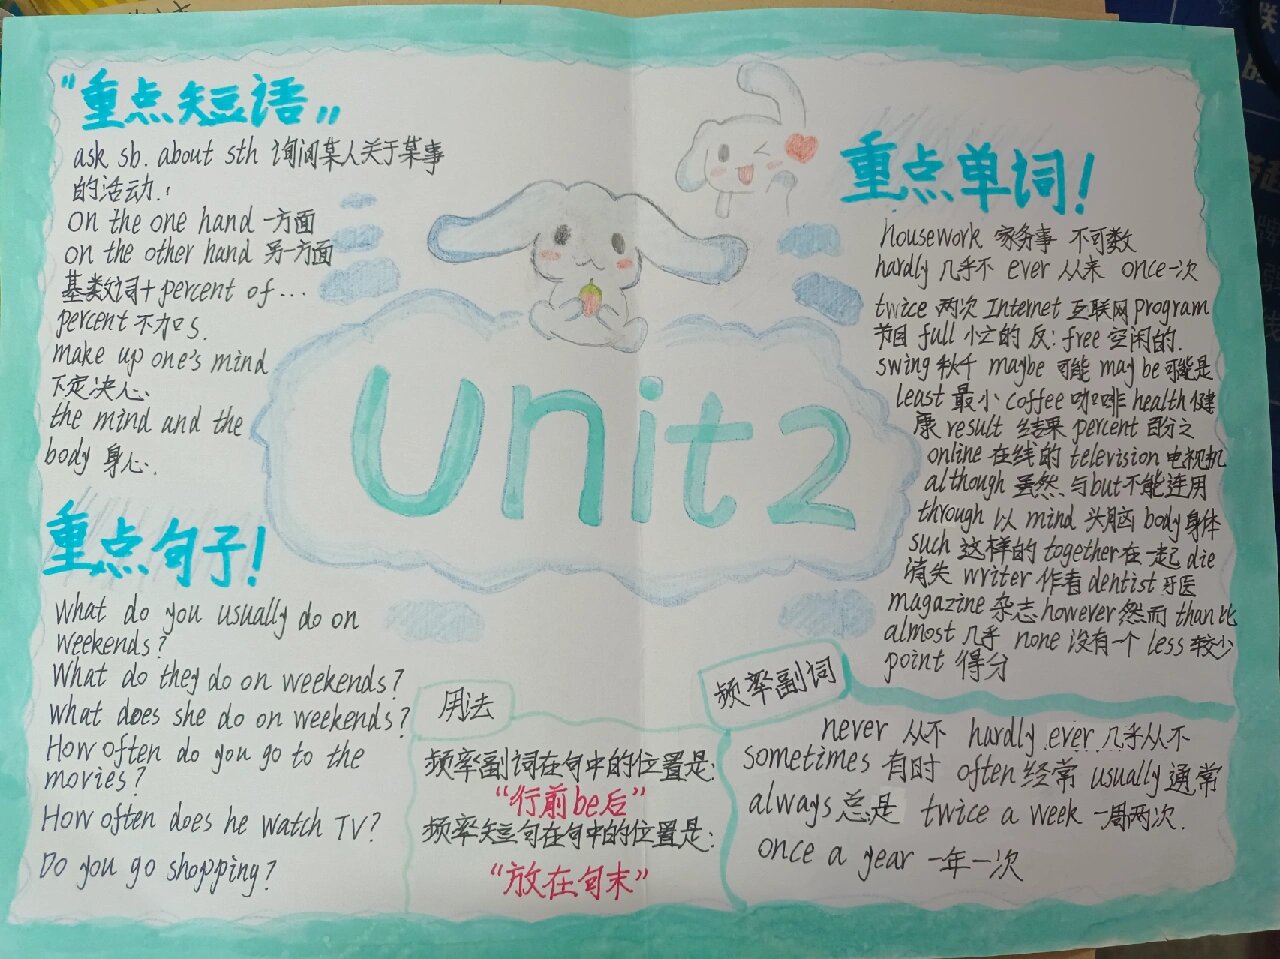 "重点短语"
ask sb. about sth 询问某人关于某事
的活动.
on the one hand 一方面
on the other hand 另一方面
基数词+percent of...
percent 不加s.
make up one's mind
下定决心.
the mind and the
body 身心.
重点句子!
What do you usually do on
weekends?
What do they do on weekends?
what does she do on weekends?
How often do you go to the
movies?
How often does he watch TV?
Do you go shopping?
Unit2
重点单词!
housework 家务事 不可数
hardly 几乎不 ever 从来 once一次
twice 两次 Internet 互联网 program
节目 full 忙的 反: free 空闲的.
swing 秋千 maybe 可能 may be 可能是
least 最小 coffee 咖啡 health 健
康 result 结果 percent 百分之
online 在线的 television 电视机
although 虽然 与but不能连用
through 以 mind 头脑 body身体
such 这样的 together在一起 die
消失 writer 作者 dentist 牙医
magazine 杂志 however 然而 than 比
almost 几乎 none 没有一个 less 较少
point 得分
用法
频率副词在句中的位置是:
"行前be后"
频率短句在句中的位置是:
"放在句末"
频率副词
never 从不 hardly ever 几乎从不
sometimes 有时 often 经常 usually 通常
always 总是 twice a week 一周两次.
once a year 一年一次